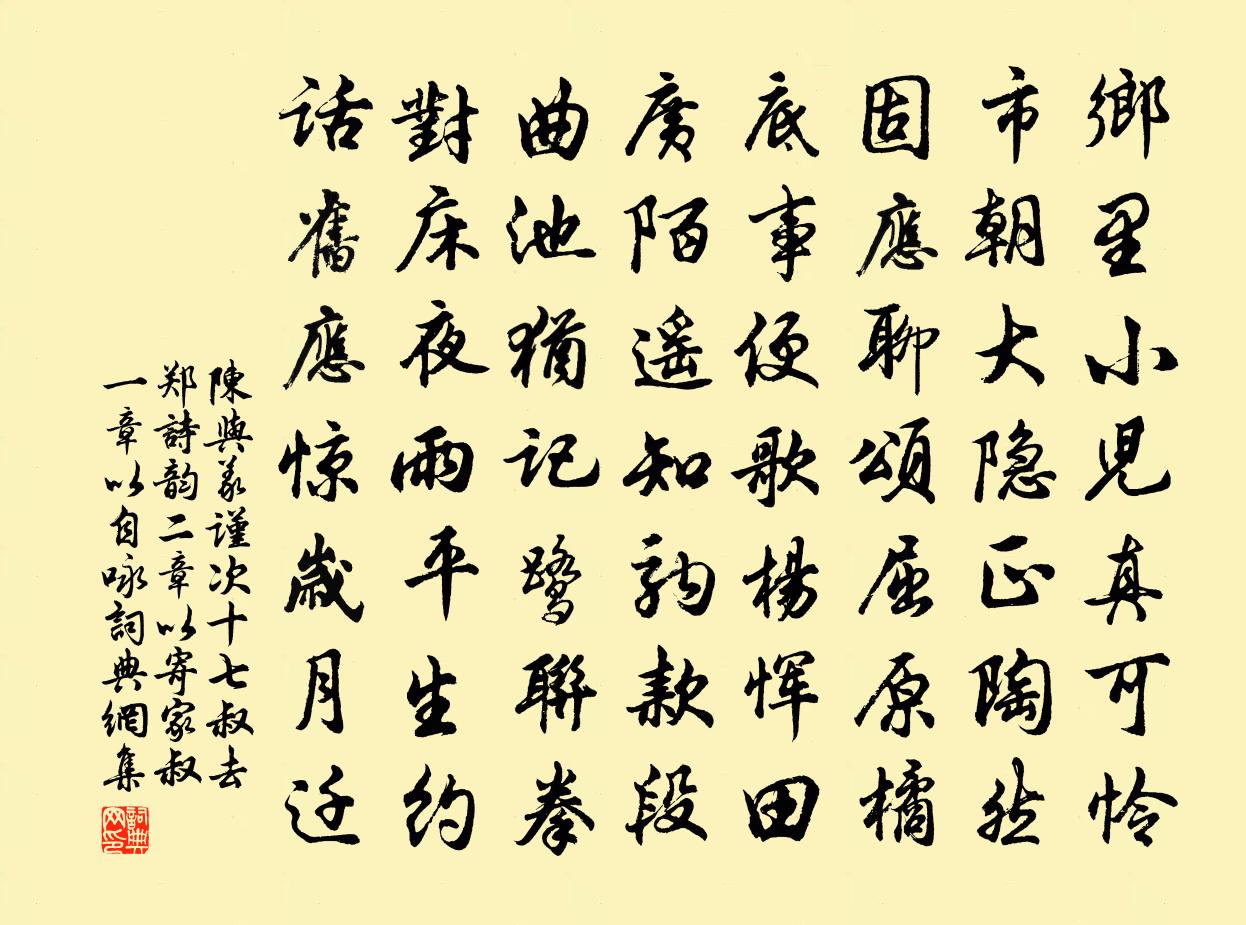 鄉里小兒真可怜
市朝大隐正陶然
固應聊頌屈原橘
底事便歌楊恽田
廣陌遥知駒款段
曲池猶記鹭聯拳
對床夜雨平生約
话舊應惊歲月迁
陳與義謹次十七叔去
郑詩韵二章以寄家叔
一章以自咏詞典網集
詞典
网印